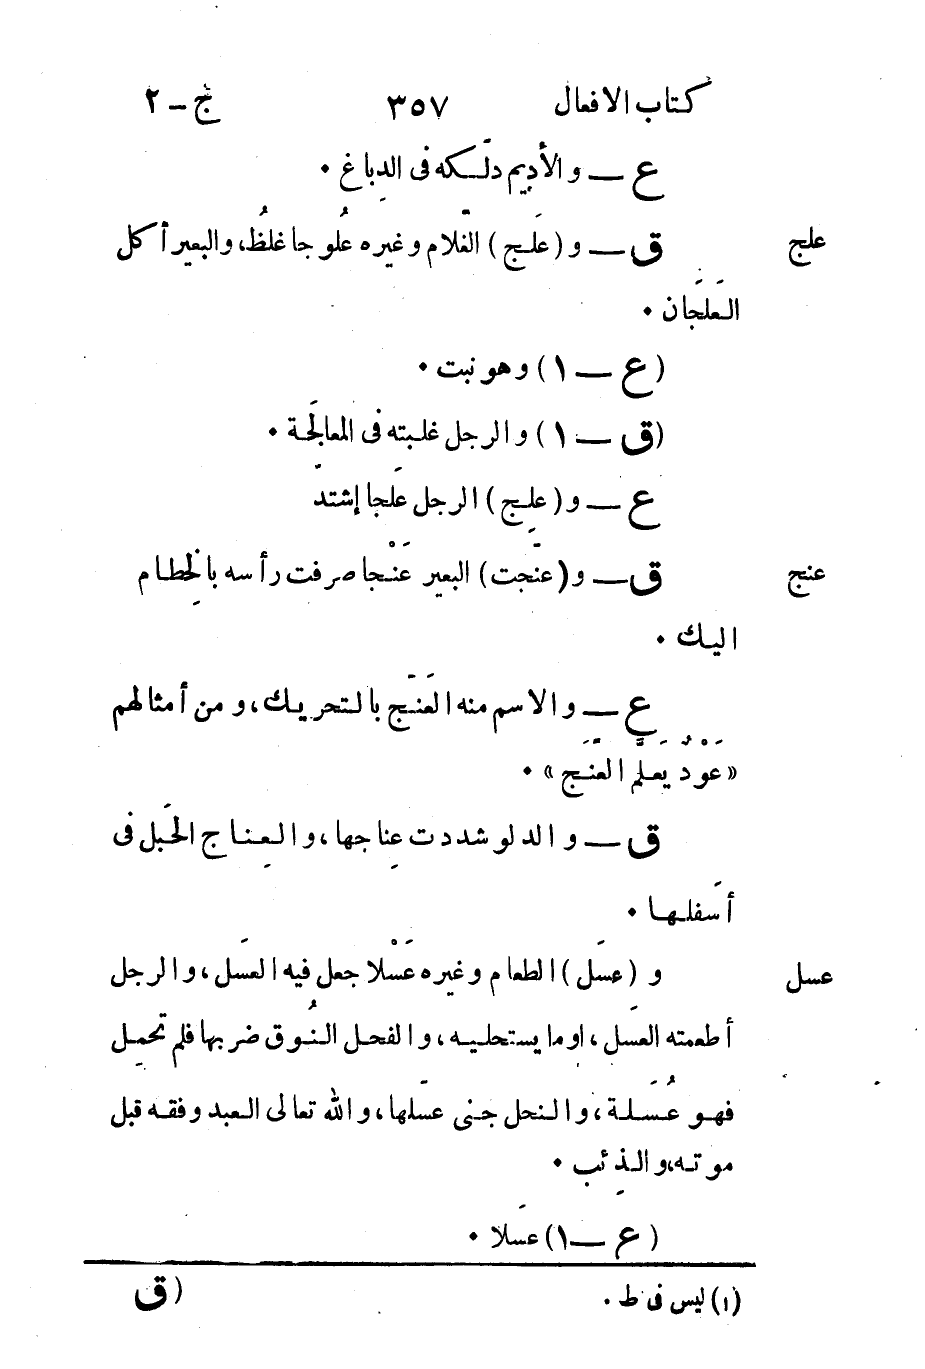 كتاب الافعال ٣٥٧ ج - ٢
ع — والأديم دلّكه فى الدِباغ ٠
علج ق — و (علَج) الغُلام وغيره عُلُوجا غلظُ، والبعير أكل
العلَجَان ٠
(ع — ١) وهو نبت ٠
(ق — ١) والرجل غلبته فى المعالَجة ٠
ع — و (علِج) الرجل علَجا إشتدّ
عنج ق — و (عنَجت) البعير عَنْجا صرفت رأسه بالخِطام
اليك ٠
ع — والاسم منه العَنَج بالتحريك، ومن أمثالهم
«عَوْدٌ يعلَّم العَنَج» ٠
ق — والدلو شددت عِناجها، والعِناج الحَبل فى
أسَفلها ٠
عسل و (عسَل) الطعام وغيره عَسْلا جعل فيه العسَل، والرجل
أطعمته العسَل، اوما يستحليه، والفحل النُوق ضربها فلم تحمِل
فهو عُسَلة، والنحل جنى عسَلها، والله تعالى العبد وفقه قبل
موته، والذِئب ٠
(ع — ١) عسَلا ٠
(١) ليس فى ط ٠ (ق